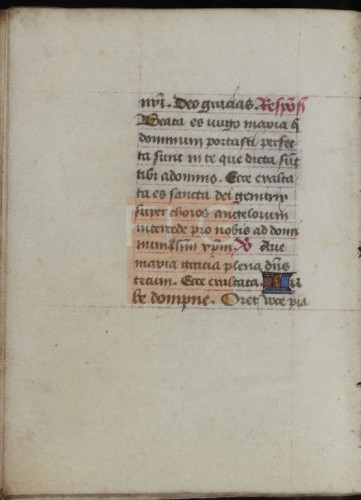 nr̄i. Deo gracias. Respōſ
Beata es uirgo maria q̄
dominum portaſti perfec
ta ſunt in te que dicta ſūt
tibi a domno. Ecce exalta
ta es ſancta dei genitrix
ſuper choros angelorum
intercede pro nobis ad domi
num
Aue
maria gracia plena dn̄s
tecum. Ecce exaltata. Iu
be dompne. Oret uoce pia